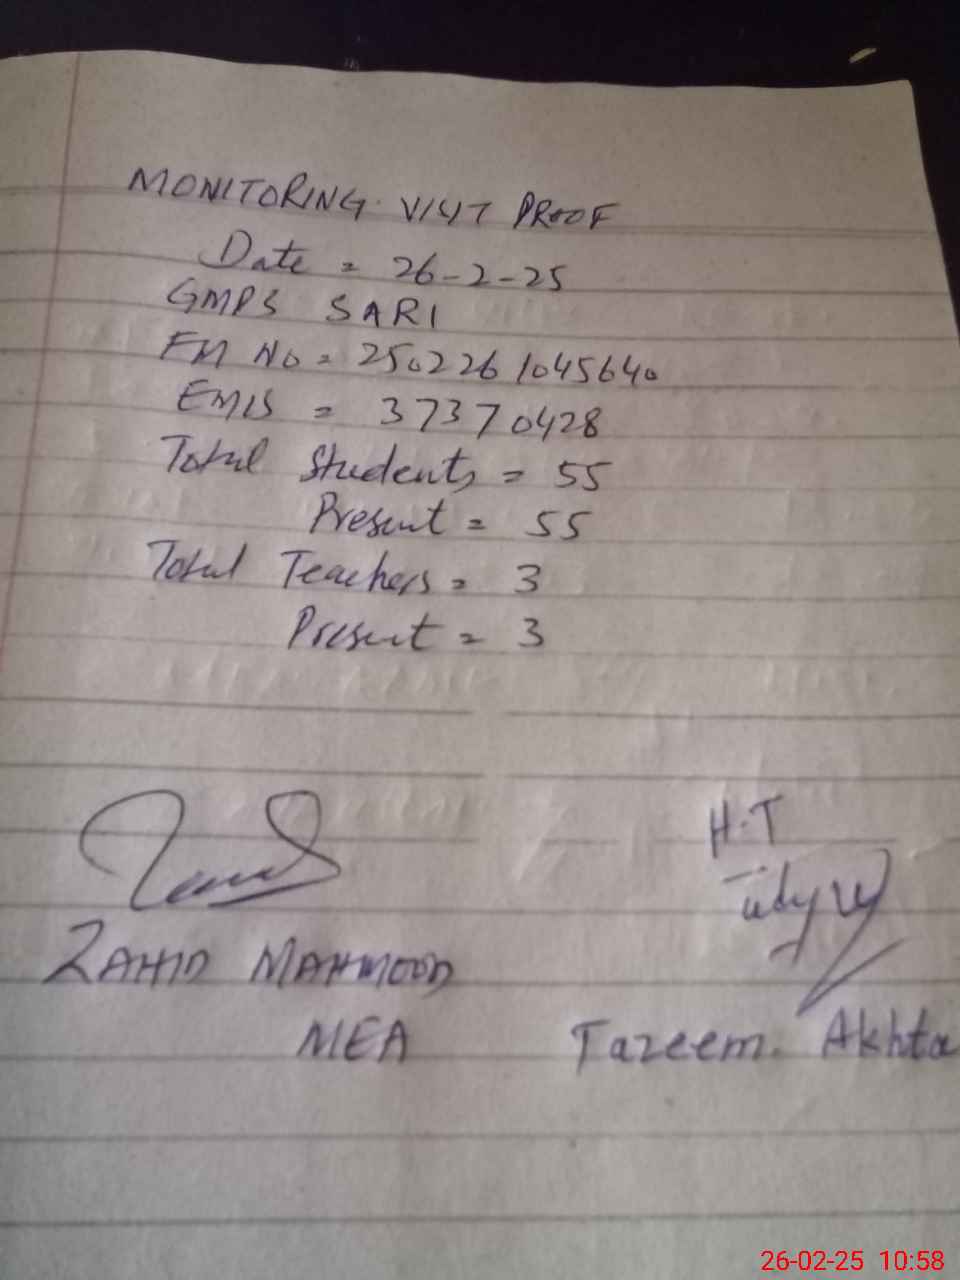 MONITORING VISIT PROOF
Date = 26-2-25
GMPS SARI
FM No = 2502261045640
EMIS = 37370428
Total Students = 55
Present = 55
Total Teachers = 3
Present = 3
H.T
ZAHID MAHMOOD
MEA
Tazeem. Akhta
26-02-25 10:58